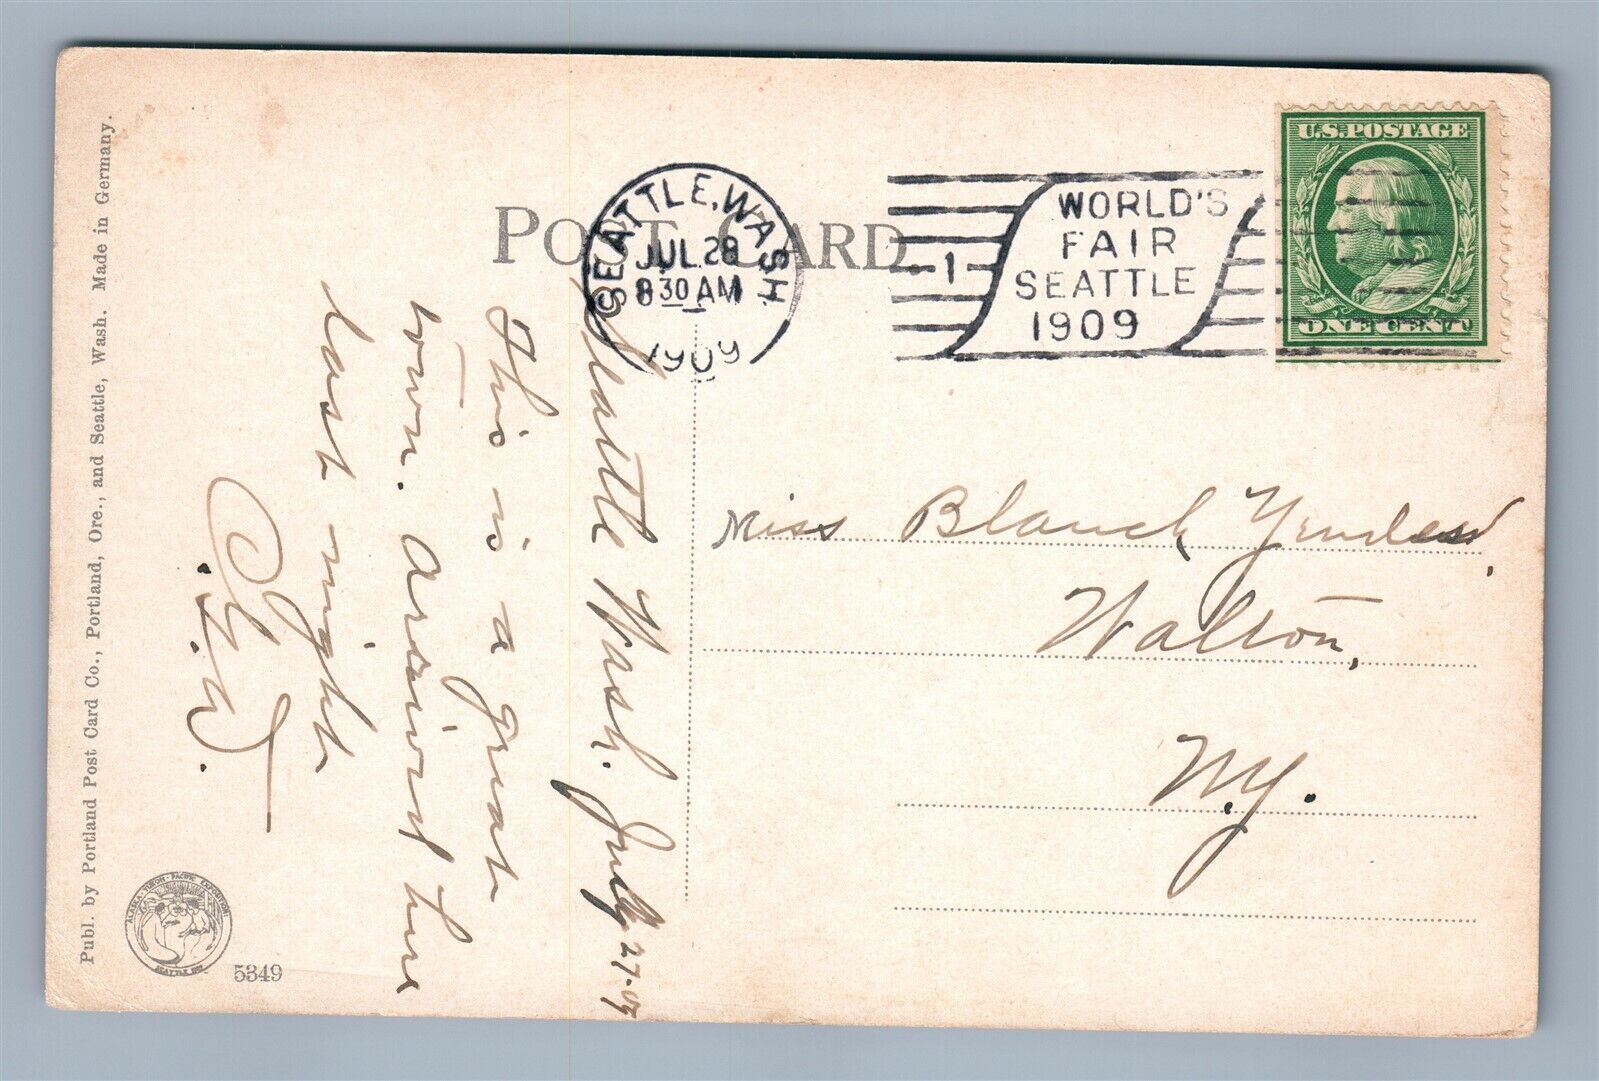 POST CARD
SEATTLE, WASH.
JUL 28
8 30 AM
1909
1
WORLD'S
FAIR
SEATTLE
1909
U.S. POSTAGE
ONE CENT
Seattle Wash. July 27-09
This is a great
town. Arrived here
last night
W.
Miss Blanch
Walton,
N.Y.
Publ. by Portland Post Card Co., Portland, Ore., and Seattle, Wash. Made in Germany.
ALASKA-YUKON-PACIFIC EXPOSITION
SEATTLE 1909
5349